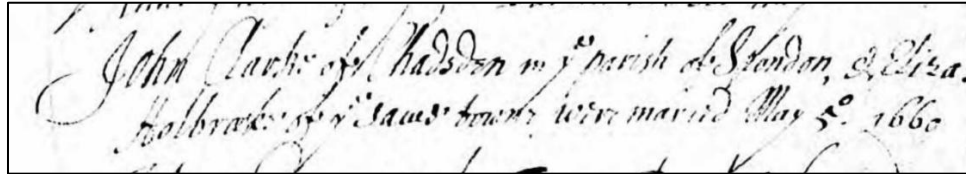 John Clarke of Chadsden in yᵉ parish of Spondon, & Eliza.
Holbrooke of yᵉ same towne were maried May 5º. 1660